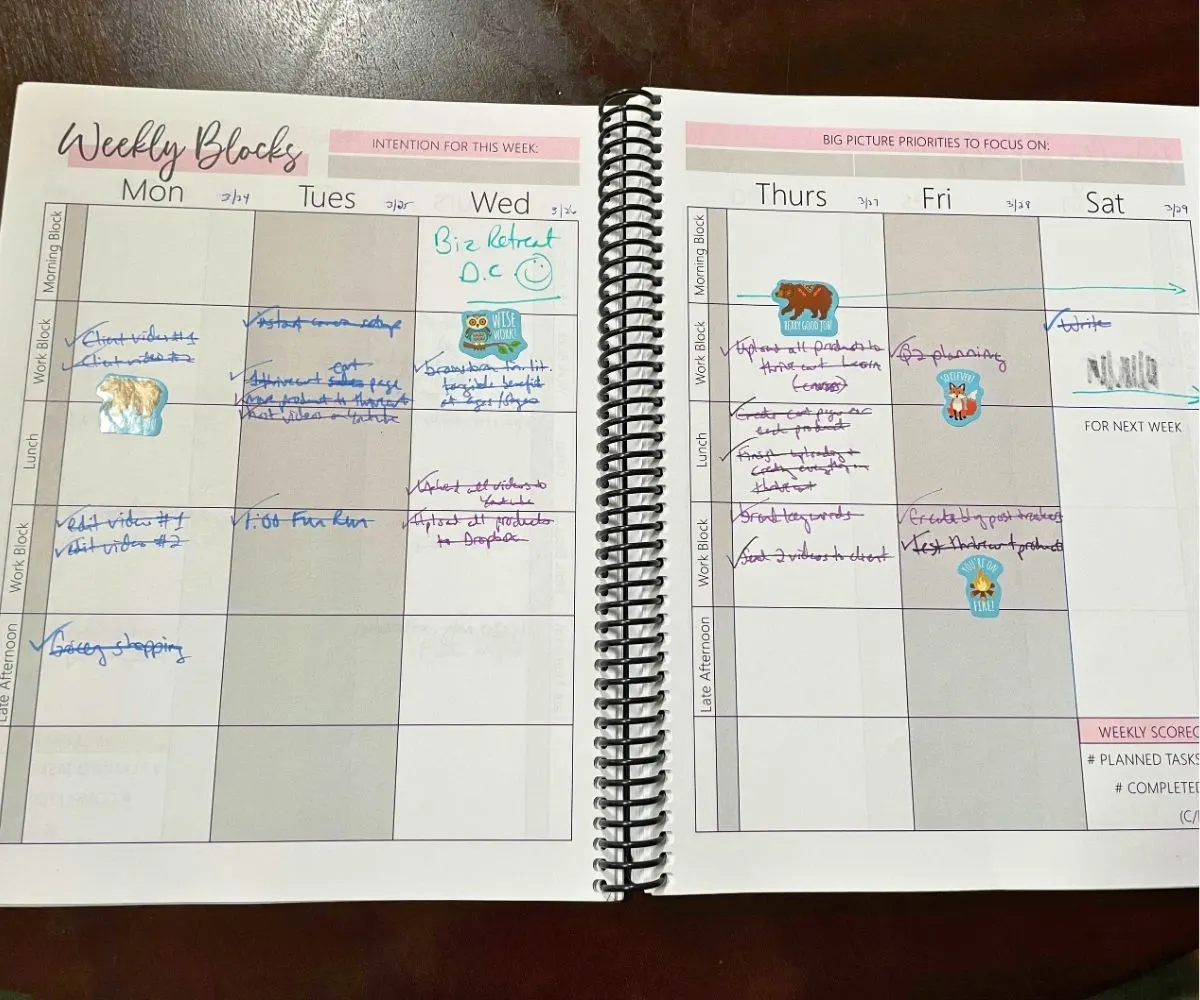 Weekly Blocks
INTENTION FOR THIS WEEK:
Mon 3/24
Tues 3/25
Wed 3/26
Morning Block
Biz Retreat
D.C
Work Block
Client video #1
Client video #2
cart
page
WISE
WORK!
brainstorm
tangible benefit
Lunch
videos on Youtube
all videos to
Youtube
Work Block
edit video #1
edit video #2
1:00 Fun Run
Upload all products
to Dropbox
Late Afternoon
Grocery shopping
BIG PICTURE PRIORITIES TO FOCUS ON:
Thurs 3/27
Fri 3/28
Sat 3/29
Morning Block
BEARY GOOD JOB!
Work Block
Upload all products to
thrivecart learn
(courses)
Q2 planning
SO CLEVER!
Write
Lunch
Create cart page for
each product
Finish uploading +
creating everything in
thrivecart
FOR NEXT WEEK
Work Block
keywords
Send 2 videos to client
Create blog post
Test thrivecart products
YOU'RE ON
FIRE!
Late Afternoon
WEEKLY SCOREC
# PLANNED TASKS
# COMPLETED
(C/